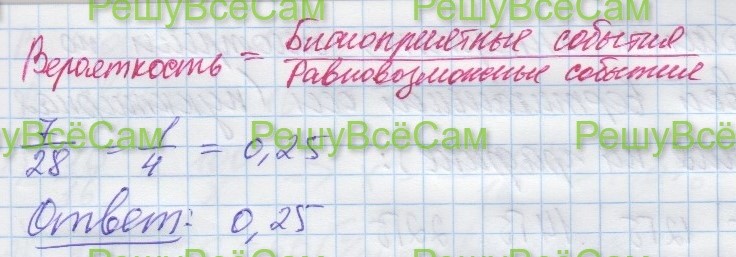 РешуВсёСам РешуВсёСам
Вероятность = Благоприятные события / Равновозможные события
РешуВсёСам РешуВсёСам РешуВсёСам
7/28 = 1/4 = 0,25
Ответ: 0,25
РешуВсёСам РешуВсёСам